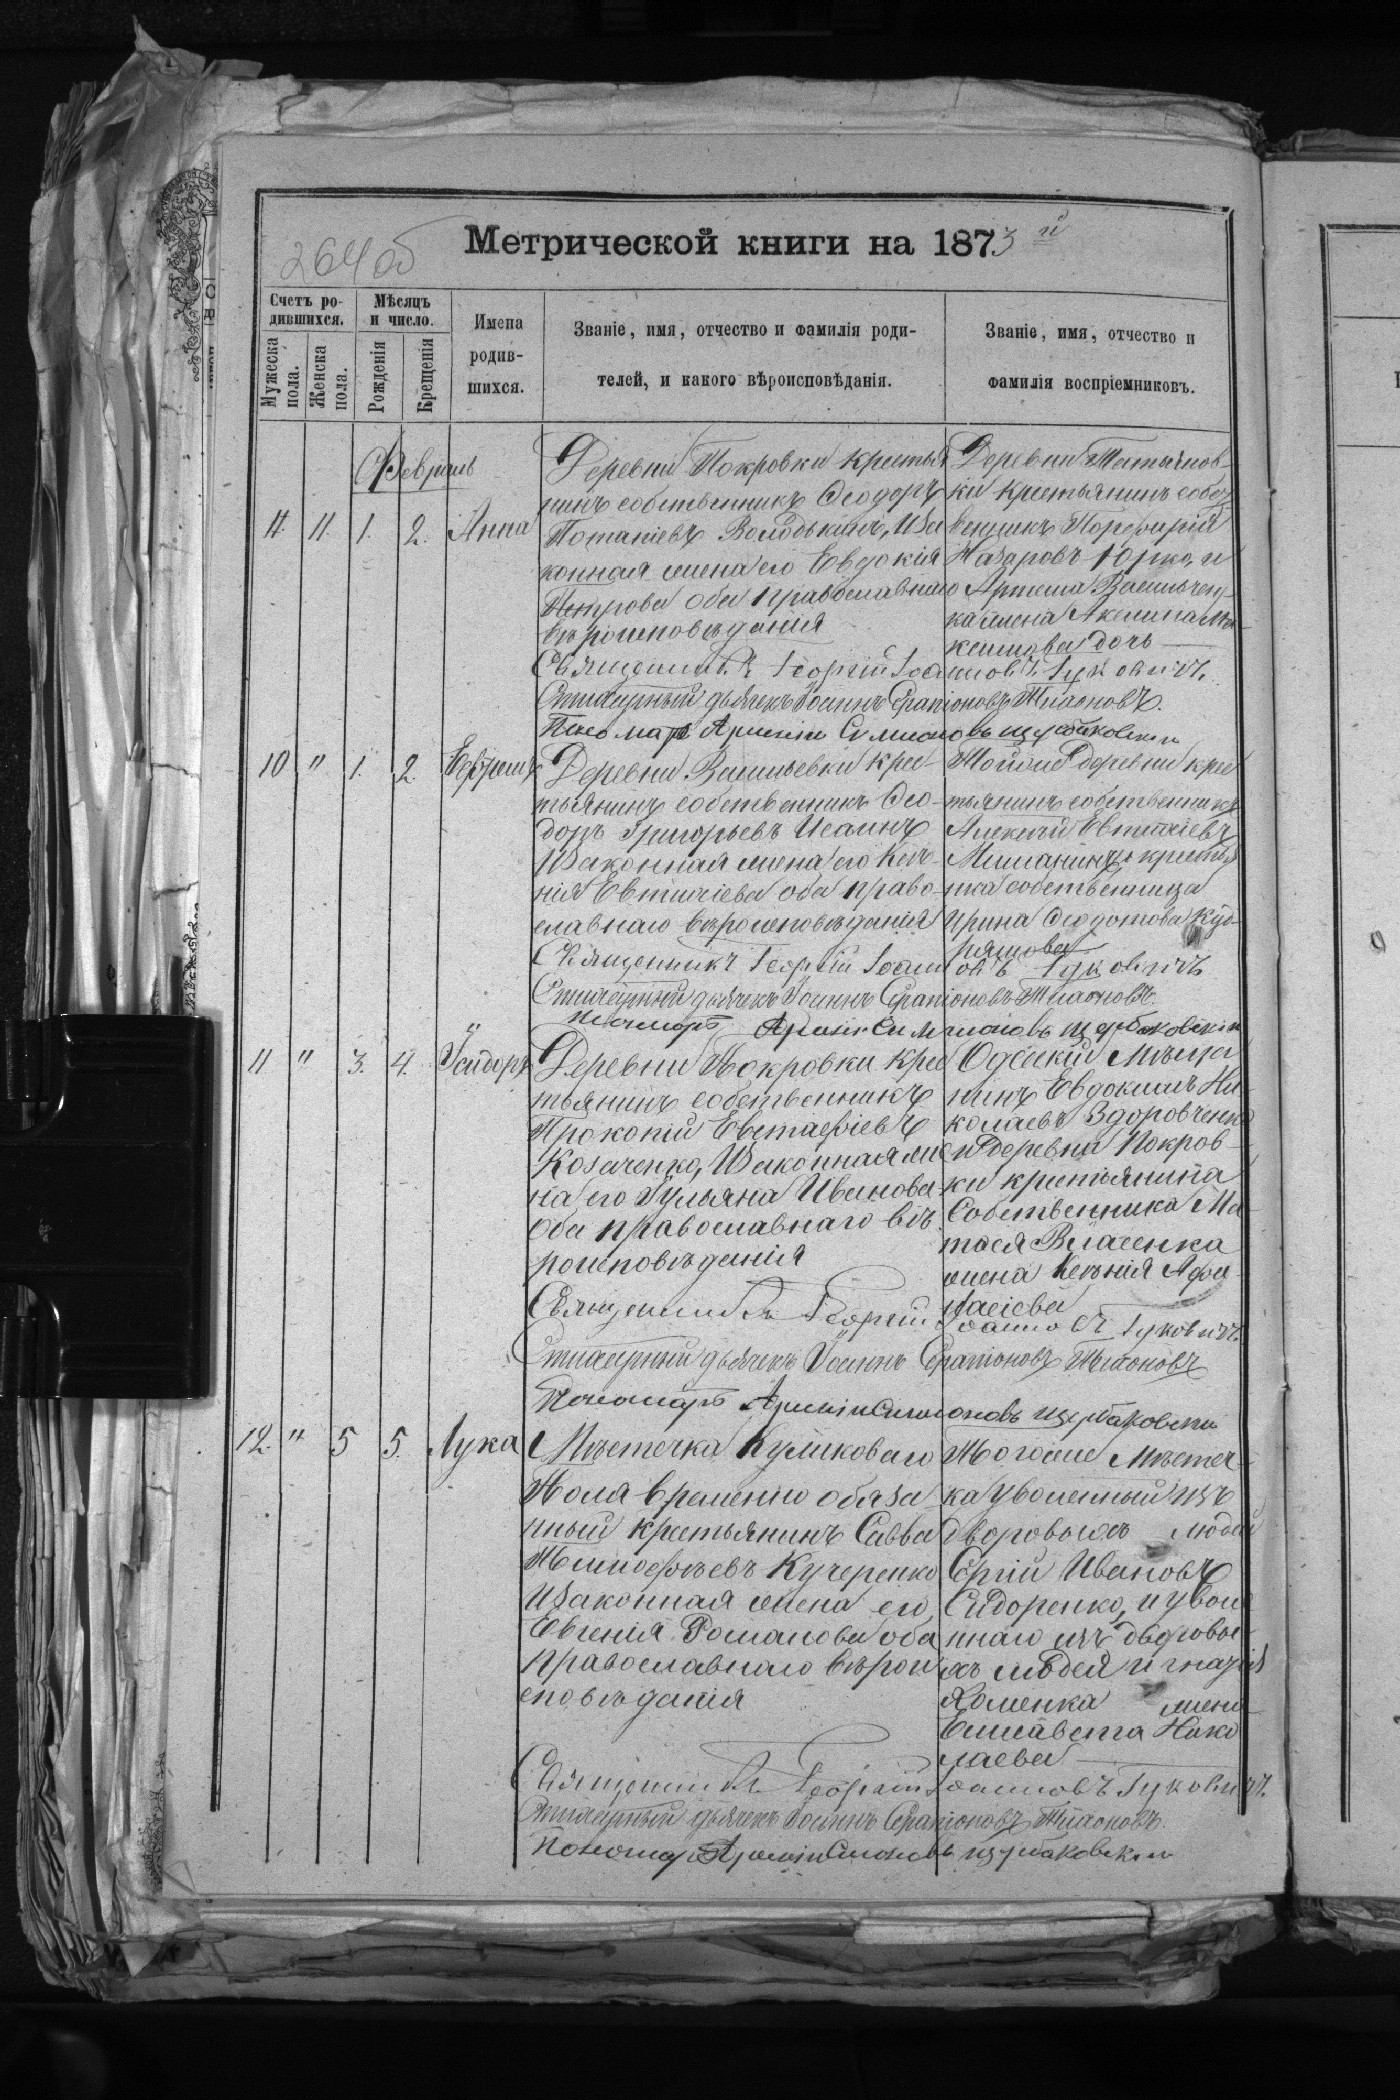 264 об
Метрической книги на 1873 й
Счетъ ро-
дившихся.
Мужеска
пола.
Женска
пола.
Мѣсяцъ
и число.
Рожденія
Крещенія
Имена
родив-
шихся.
Званіе, имя, отчество и фамилія роди-
телей, и какого вѣроисповѣданія.
Званіе, имя, отчество и
фамилія воспріемниковъ.
Февраль
11. 1. 2. Анна
Деревни Покровки крестья
нинъ собственникъ Ѳеодоръ
Потапіевъ Володькинъ, иза
конная жена его Евдокія
Петрова оба православнаго
вѣроисповѣданія
Деревни Татьянов-
ки крестьянинъ собст
венникъ Порфирій
Назаровъ Юрко, и
Артема Васильчен-
ка жена Акелина Ма-
ксимова дочь
Священникъ Георгій Іоанновъ Гуковичъ.
Стихарный дьячекъ Іоаннъ Серапіоновъ Тихоновъ.
Пономарь Арсеній Симоновъ Щербаковскій
10 " 1. 2. Ефремъ
Деревни Васильевки кре-
стьянинъ собственникъ Ѳео-
доръ Григорьевъ Исаинъ
изаконная жена его Ксе-
нія Евтихіева оба право-
славнаго вѣроисповѣданія
Тойже деревни кре
стьянинъ собственникъ
Алексѣй Евтихіевъ
Мишанинъ и крестья
нка собственница
Ирина Ѳеодотова Куд-
ряшова
Священникъ Георгій Іоанновъ Гуковичъ
Стихарный дьячекъ Іоаннъ Серапіоновъ Тихоновъ.
Пономарь Арсеній Симоновъ Щербаковскій
11 " 3. 4. Исидоръ
Деревни Покровки кре
стьянинъ собственникъ
Прокопій Евстафіевъ
Козаченко, изаконная же
на его Іульяна Иванова
оба православнаго вѣ-
роисповѣданія
Одескій мѣща
нинъ Евдокимъ Ни-
колаевъ Здоровченко
и деревни Покров-
ки крестьянина
собственника Ма-
тѳея Власенка
жена Ксенія Афа-
насіева
Священникъ Георгій Іоанновъ Гуковичъ.
Стихарный дьячекъ Іоаннъ Серапіоновъ Тихоновъ
Пономарь Арсеній Симоновъ Щербаковскій
12. " 5 5. Лука
Мѣстечка Куликоваго
Поля временно обяза
нный крестьянинъ Савва
Тимофѣевъ Кучеренко
изаконная жена его,
Евгенія Романова оба
православнаго вѣрои
сповѣданія
Тогоже мѣстеч-
ка уволенный изъ
дворовыхъ людей
Сргій Ивановъ
Сидоренко, и увол
ннаго изъ дворовы-
хъ людей Игнатія
Хоменка жена
Елисавета Нико
лаева
Священникъ Георгій Іоанновъ Гуковичъ.
Стихарный дьячекъ Іоаннъ Серапіоновъ Тихоновъ.
Пономарь Арсеній Симоновъ Щербаковскій